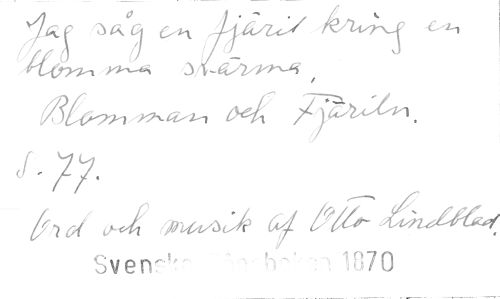 Jag såg en fjäril kring en
blomma svärma,
Blomman och Fjäriln.
S. 77.
Ord och musik af Otto Lindblad.
Svenska Sångboken 1870